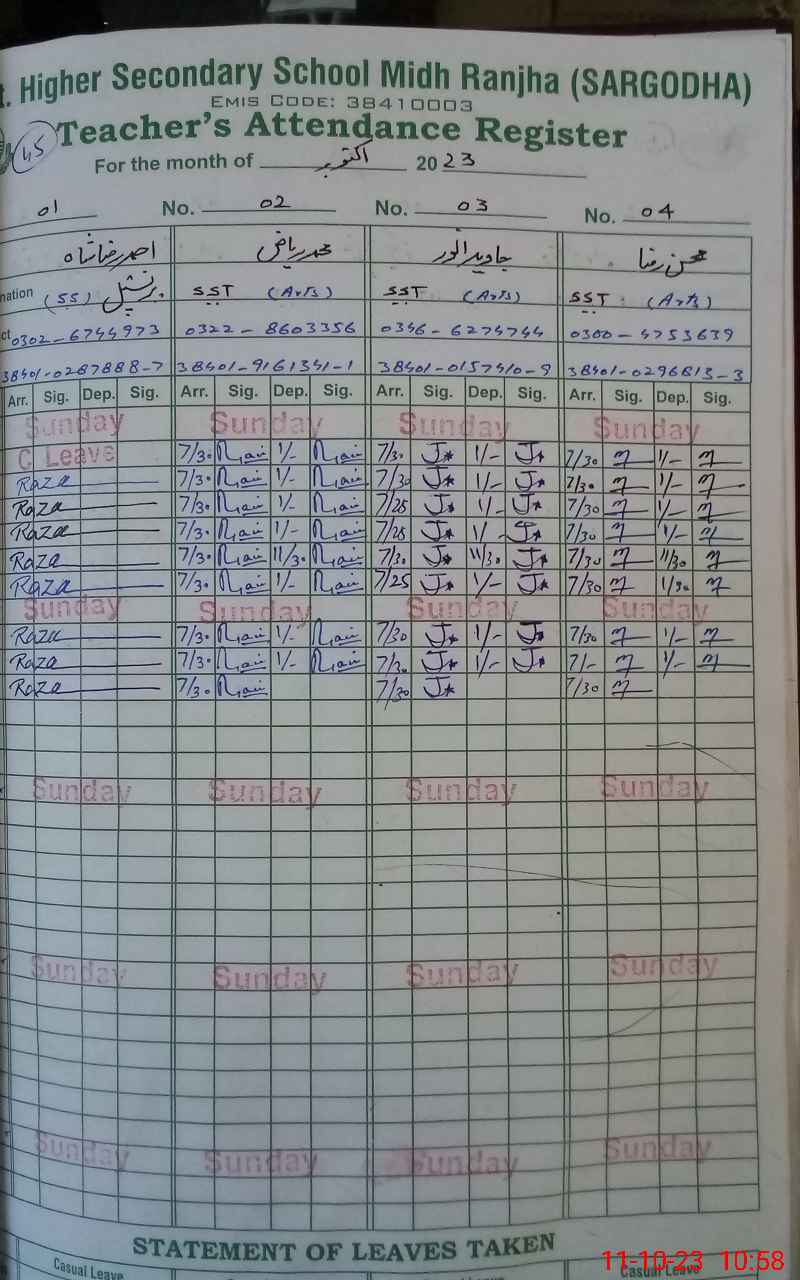 t. Higher Secondary School Midh Ranjha (SARGODHA)
EMIS CODE: 38410003
45 Teacher's Attendance Register
For the month of اکتوبر 2023
01 No. 02 No. 03 No. 04
احمد رضا شاہ محمد ریاض جاوید انور محسن رضا
nation (SS) پرنسپل SST (Arts) SST (Arts) SST (Arts)
ct 0302-6744973 0322-8603356 0346-6274744 0300-4753639
38401-0287888-7 38401-9161341-1 38401-0157410-9 38401-0296813-3
Arr. Sig. Dep. Sig. Arr. Sig. Dep. Sig. Arr. Sig. Dep. Sig. Arr. Sig. Dep. Sig.
Sunday Sunday Sunday Sunday
C Leave 7/30 1/- 7/30 1/- 7/30 1/-
Raza 7/30 1/- 7/30 1/- 7/30 1/-
Raza 7/30 1/- 7/25 1/- 7/30 1/-
Raza 7/30 1/- 7/25 1/- 7/30 1/-
Raza 7/30 11/30 7/30 11/30 7/30 11/30
Raza 7/30 1/- 7/25 1/- 7/30 1/30
Sunday Sunday Sunday Sunday
Raza 7/30 1/- 7/30 1/- 7/30 1/-
Raza 7/30 1/- 7/30 1/- 7/- 1/-
Raza 7/30 7/30 7/30
Sunday Sunday Sunday Sunday
Sunday Sunday Sunday Sunday
Sunday Sunday Sunday Sunday
STATEMENT OF LEAVES TAKEN
Casual Leave Casual Leave
11-10-23 10:58